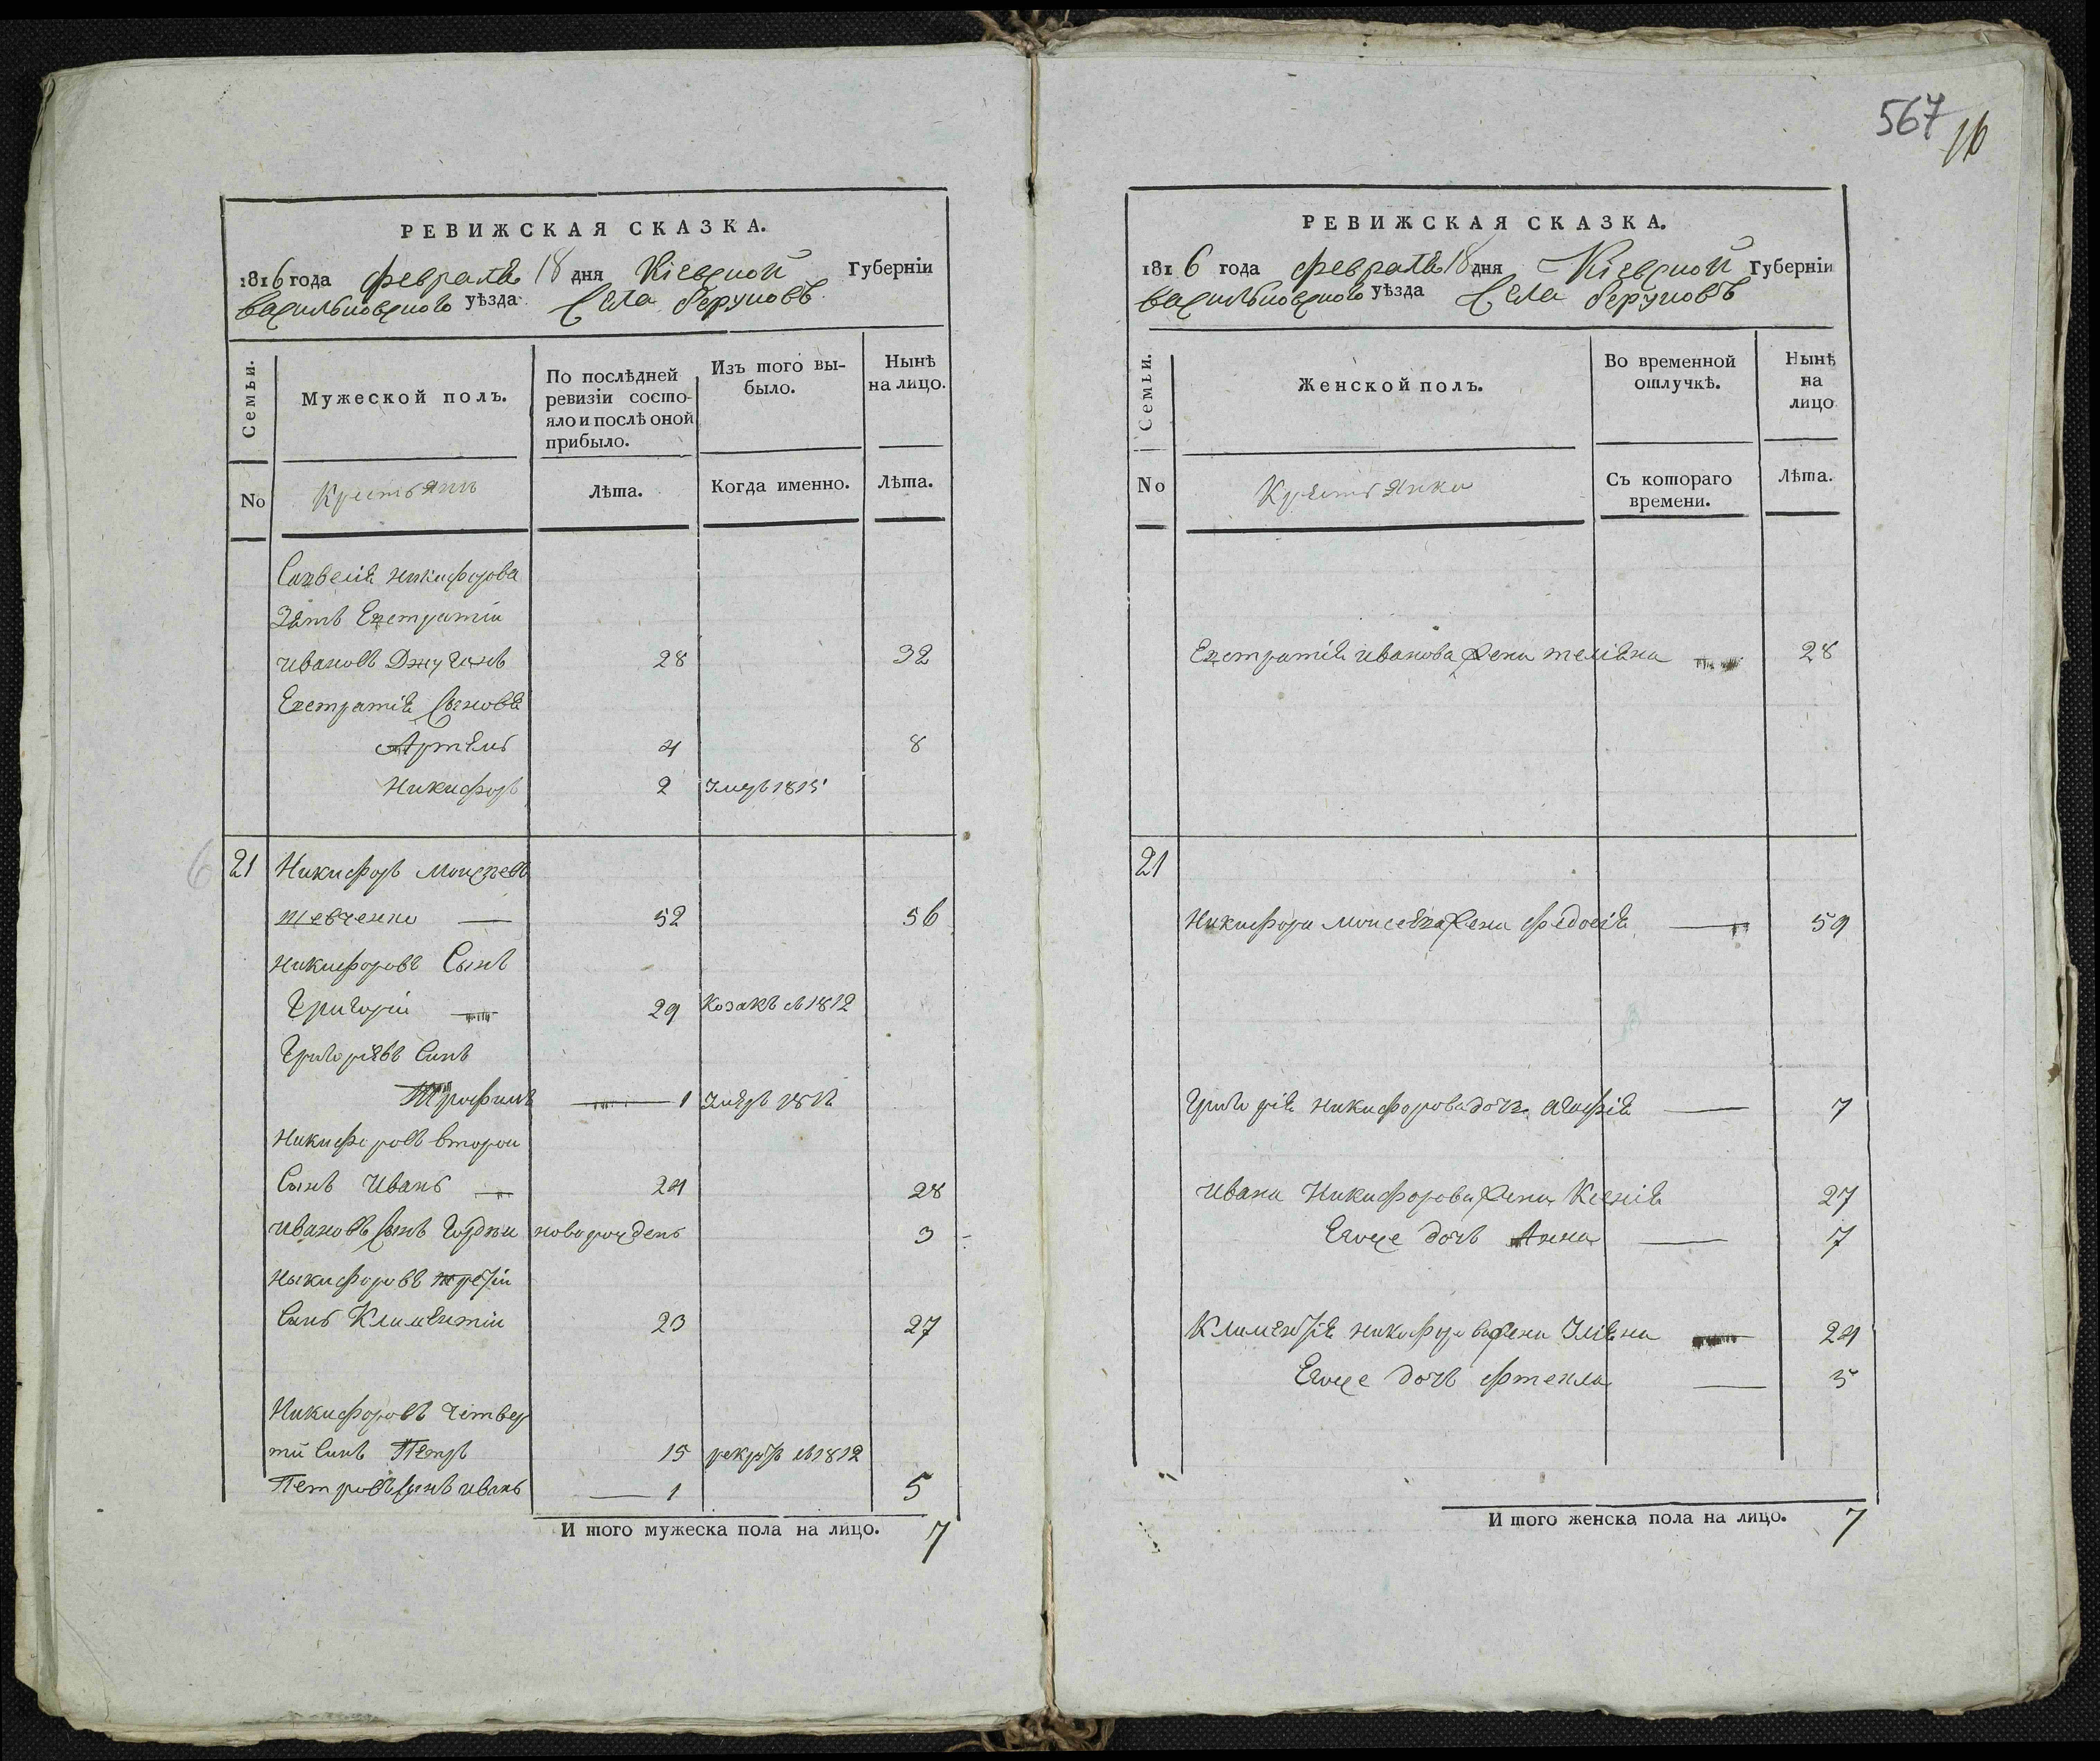 567
16
РЕВИЖСКАЯ СКАЗКА.
1816 года февраля 18 дня Кіевской Губерніи
васильковского уѣзда Села беруковъ
Семьи.
Мужеской полъ.
По послѣдней ревизіи состо-
яло и послѣ оной прибыло.
Изъ того вы-
было.
Нынѣ на лицо.
No
Крестьянъ
Лѣта.
Когда именно.
Лѣта.
Савелія никифорова
Зять Евстратіи
ивановъ 28 32
Евстратія сыновя
Артемъ 4 8
Никифоръ 2 Умеръ 1815
6
21 Никифоръ Мойсеевъ
шевченко — 52 56
никифоровъ Сынъ
Григорій — 29 Козакъ въ 1812
Григоріевъ Синъ
Трофимъ — 1 Умеръ
Никифоровъ второи
Сынъ Иванъ — 24 28
Ивановъ Сынъ Гордѣи новорожденъ 3
Ныкифоровъ третіи
Сынъ Климентіи 23 27
Никифоровъ четвер
тій Синъ Петръ 15 рекрутъ въ 1812
Петровъ сынъ иванъ — 1 5
И того мужеска пола на лицо. 7
РЕВИЖСКАЯ СКАЗКА.
1816 года февраля 18 дня Кіевской Губерніи
васильковского уѣзда Села беруковъ
Семьи.
Женской полъ.
Во временной отлучкѣ.
Нынѣ на лицо
No
Крестьянки
Съ котораго времени.
Лѣта.
Евстратія иванова жена мелияна — 28
21
Никифора моисеева жена федосія — 59
Григорія никифорова дочь агафія — 7
ивана Никифорова жена Ксенія 27
Егоже дочь Анна — 7
Климентія никифорова жена Уліяна — 24
Егоже дочь фтекла — 5
И того женска пола на лицо. 7